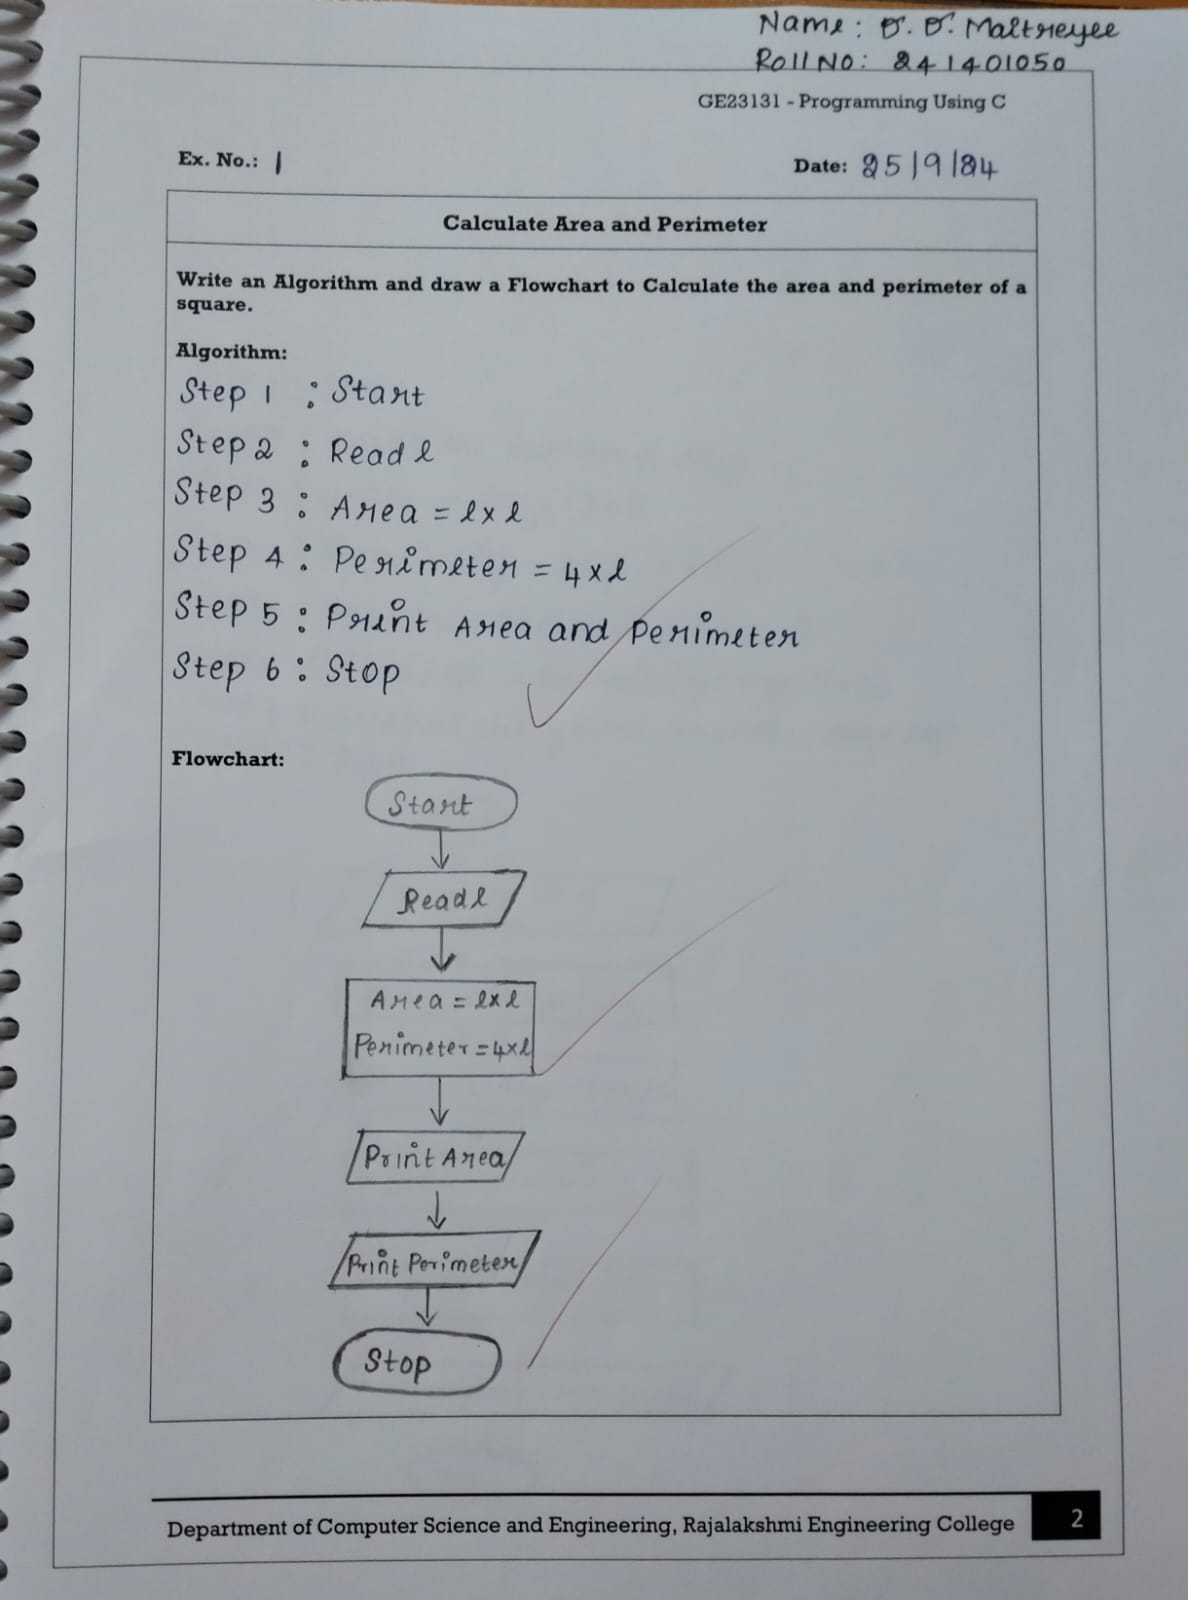 Name: D. D. Maitreyee
Roll No: 241401050
GE23131 - Programming Using C
Ex. No.: 1
Date: 25/9/24
Calculate Area and Perimeter
Write an Algorithm and draw a Flowchart to Calculate the area and perimeter of a
square.
Algorithm:
Step 1 : Start
Step 2 : Read l
Step 3 : Area = l x l
Step 4 : Perimeter = 4 x l
Step 5 : Print Area and Perimeter
Step 6 : Stop
Flowchart:
Start
Read l
Area = l x l
Perimeter = 4 x l
Print Area
Print Perimeter
Stop
Department of Computer Science and Engineering, Rajalakshmi Engineering College
2